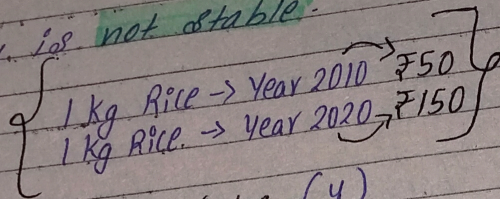 is not stable.
1 Kg Rice -> Year 2010 ₹50
1 Kg Rice. -> Year 2020 ₹150
(y)